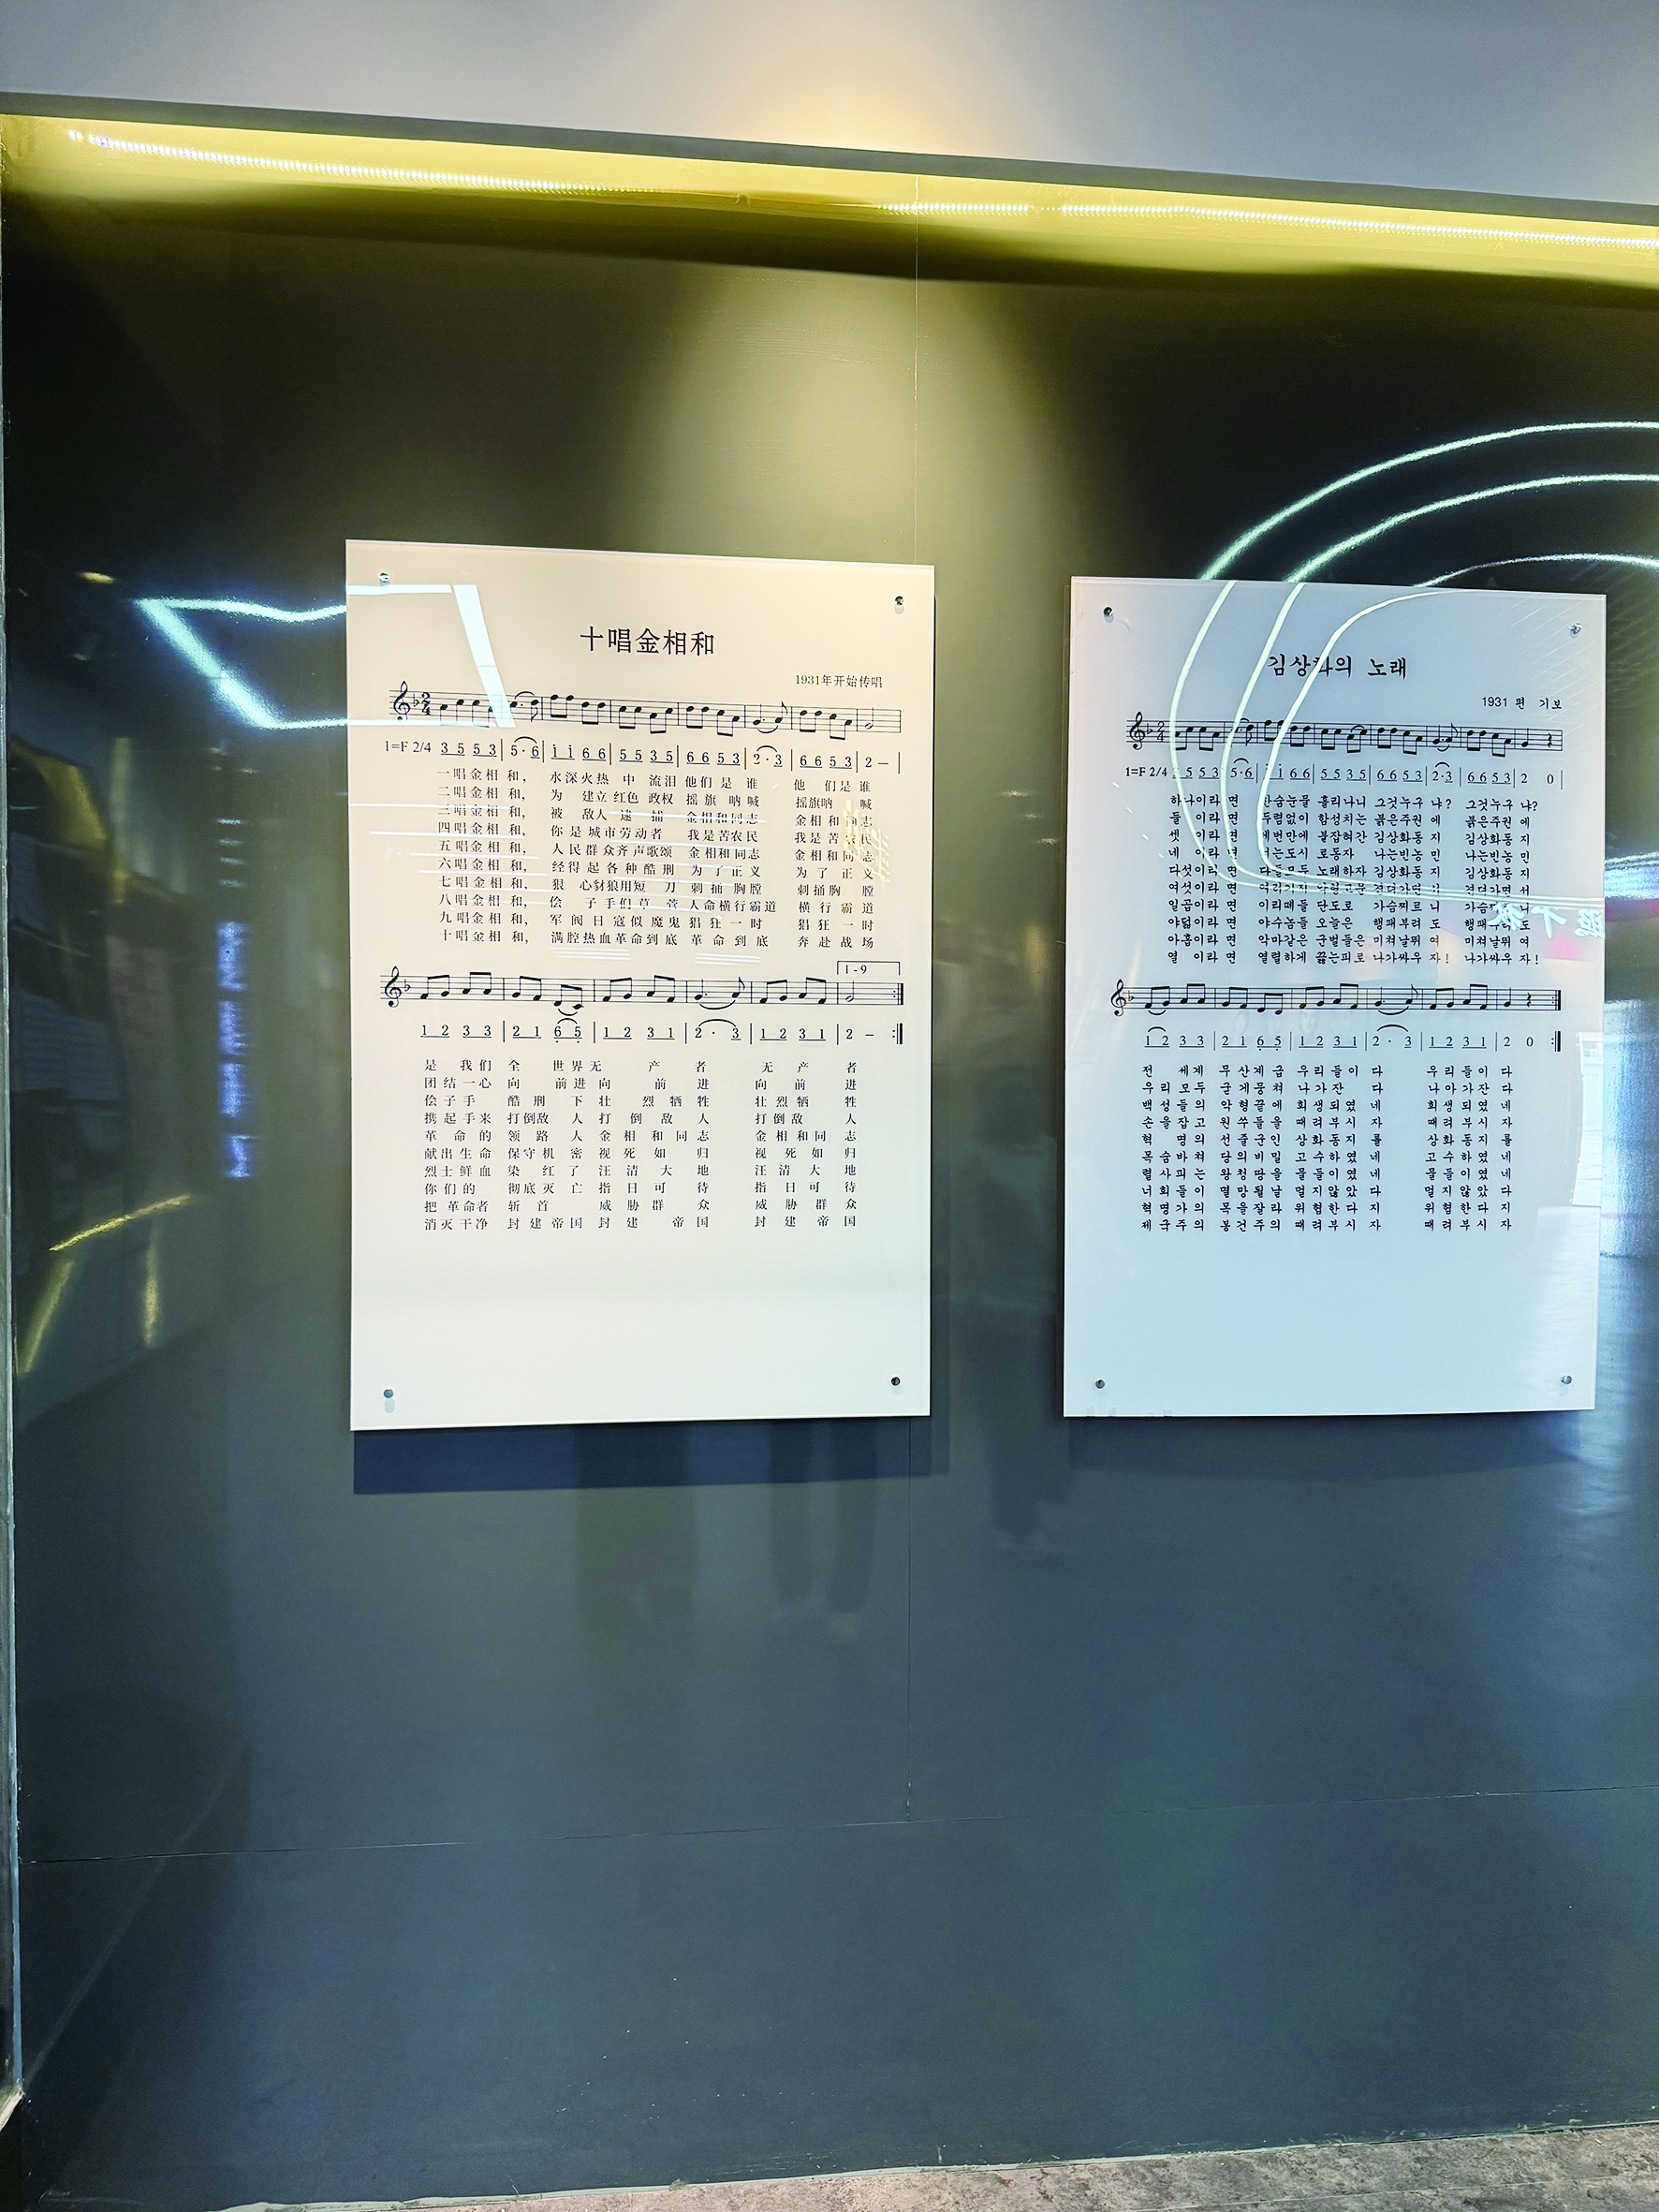 十唱金相和
1931年开始传唱
1=F 2/4 3 5 5 3 | 5· 6 | i i 6 6 | 5 5 3 5 | 6 6 5 3 | 2· 3 | 6 6 5 3 | 2 — |
一唱金相和, 水深火热 中 流泪 他们是谁 他们是谁
二唱金相和, 为 建立红色 政权 摇旗呐喊 摇旗呐喊
三唱金相和, 被 敌人逮捕 金相和同志 金相和同志
四唱金相和, 你是城市劳动者 我是苦农民 我是苦农民
五唱金相和, 人民群众齐声歌颂 金相和同志 金相和同志
六唱金相和, 经得起各种酷刑 为了正义 为了正义
七唱金相和, 狠 心豺狼用短 刀 刺捅胸膛 刺捅胸膛
八唱金相和, 侩 子手们草 菅 人命横行霸道 横行霸道
九唱金相和, 军阀日寇似魔鬼 猖狂一时 猖狂一时
十唱金相和, 满腔热血革命到底 革命到底 奔赴战场
1-9
1 2 3 3 | 2 1 6 5 | 1 2 3 1 | 2 · 3 | 1 2 3 1 | 2 — :|
是 我们 全 世界无 产 者 无 产 者
团结一心 向 前进 向 前 进 向 前 进
侩子手 酷刑 下 壮 烈牺牲 壮烈牺 牲
携起手来 打倒敌 人 打 倒 敌 人 打倒敌 人
革命的 领路人 金相和同志 金相和同志
献出生命 保守机密 视死如归 视死如归
烈士鲜血 染红了 汪清大地 汪清大地
你们的 彻底灭亡 指日可待 指日可待
把革命者 斩首 威胁群众 威胁群众
消灭干净 封建帝国 封建 帝国 封建帝国
김상화의 노래
1931 편 기보
1=F 2/4 5 5 3 | 5·6 | i 6 6 | 5 5 3 5 | 6 6 5 3 | 2·3 | 6 6 5 3 | 2 0 |
하나이라면 한숨눈물 흘리나니 그것누구 냐? 그것누구 냐?
둘 이라면 두렴없이 함성치는 붉은주권 에 붉은주권 에
셋 이라면 세번만에 붙잡혀간 김상화동 지 김상화동 지
네 이라면 너는도시 로동자 나는빈농 민 나는빈농 민
다섯이라면 다들모두 노래하자 김상화동 지 김상화동 지
여섯이라면 여러가지 악형고문 견뎌가면 서 견뎌가면 서
일곱이라면 이리떼들 단도로 가슴찌르 니
야덟이라면 야수놈들 오늘은 행패부려 도
아홉이라면 악마같은 군벌들은 미쳐날뛰 여 미쳐날뛰 여
열 이라면 열렬하게 끓는피로 나가싸우 자! 나가싸우 자!
1 2 3 3 | 2 1 6 5 | 1 2 3 1 | 2 · 3 | 1 2 3 1 | 2 0 :|
전 세계 무산계급 우리들이 다 우리들이 다
우리모두 굳게뭉쳐 나가잔 다 나아가잔 다
백성들의 악형끝에 희생되였 네 희생되였 네
손을잡고 원쑤들을 때려부시 자 때려부시 자
혁 명의 선줄군인 상화동지 를 상화동지 를
목숨바쳐 당의비밀 고수하였 네 고수하였 네
렬사피는 왕청땅을 물들이였 네 물들이였 네
너희들이 멸망될날 멀지않았 다 멀지않았 다
혁명가의 목을잘라 위협한다 지 위협한다 지
제국주의 봉건주의 때려부시 자 때려부시 자